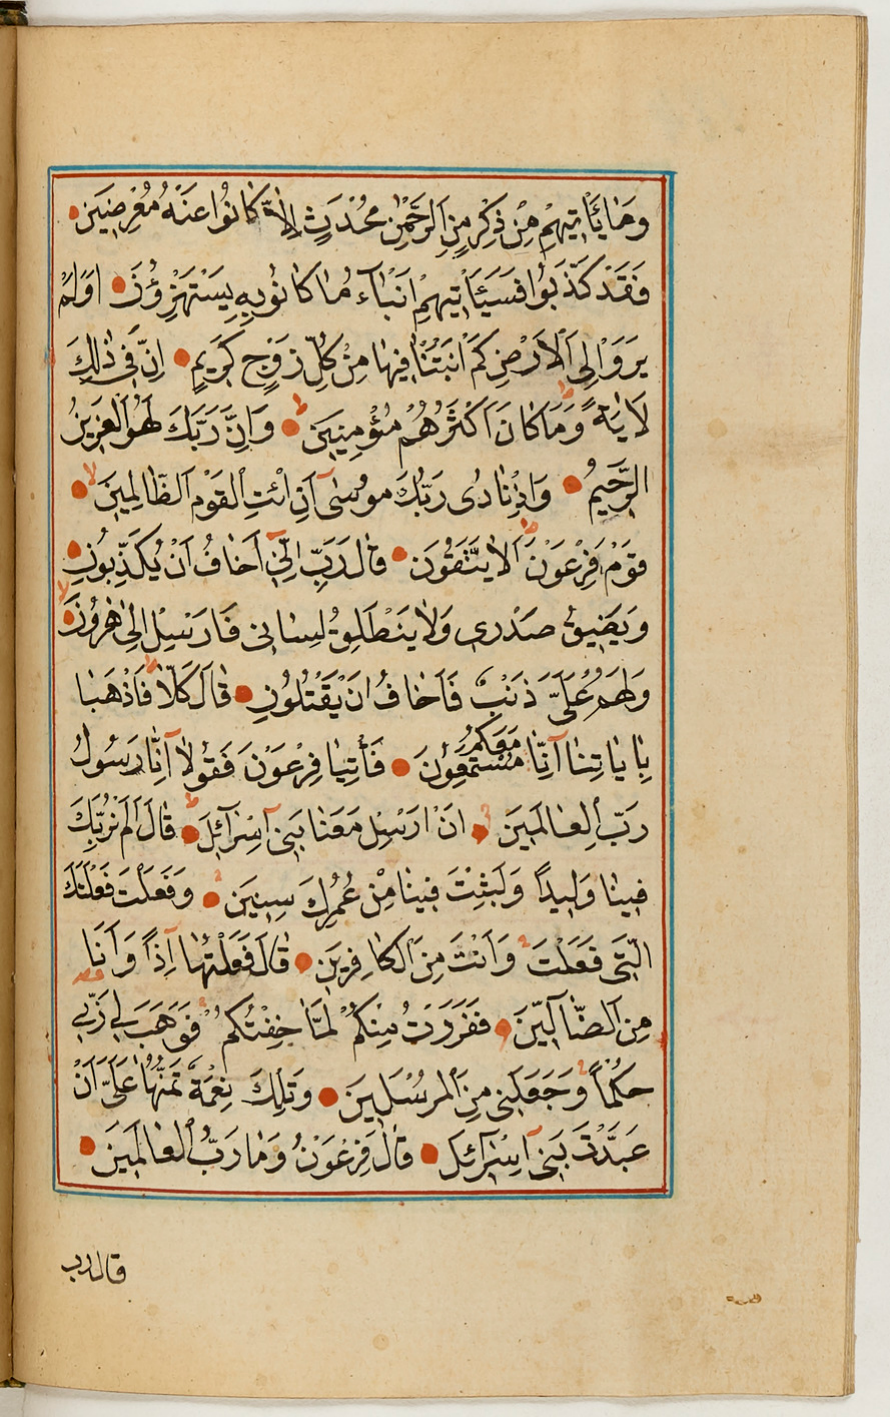 وَمَا يَأْتِيهِمْ مِنْ ذِكْرٍ مِنَ الرَّحْمٰنِ مُحْدَثٍ اِلَّا كَانُوا عَنْهُ مُعْرِضِينَ
فَقَدْ كَذَّبُوا فَسَيَأْتِيهِمْ اَنْبَاءُ مَا كَانُوا بِهِ يَسْتَهْزِؤُنَ اَوَلَمْ
يَرَوْا اِلَى الْاَرْضِ كَمْ اَنْبَتْنَا فِيهَا مِنْ كُلِّ زَوْجٍ كَرِيمٍ اِنَّ فِي ذٰلِكَ
لَاٰيَةً وَمَا كَانَ اَكْثَرُهُمْ مُؤْمِنِينَ وَاِنَّ رَبَّكَ لَهُوَ الْعَزِيزُ
الرَّحِيمُ وَاِذْ نَادٰى رَبُّكَ مُوسٰى اَنِ ائْتِ الْقَوْمَ الظَّالِمِينَ
قَوْمَ فِرْعَوْنَ اَلَا يَتَّقُونَ قَالَ رَبِّ اِنِّي اَخَافُ اَنْ يُكَذِّبُونِ
وَيَضِيقُ صَدْرِي وَلَا يَنْطَلِقُ لِسَانِي فَاَرْسِلْ اِلٰى هٰرُونَ
وَلَهُمْ عَلَيَّ ذَنْبٌ فَاَخَافُ اَنْ يَقْتُلُونِ قَالَ كَلَّا فَاذْهَبَا
بِاٰيَاتِنَا اِنَّا مَعَكُمْ مُسْتَمِعُونَ فَأْتِيَا فِرْعَوْنَ فَقُولَا اِنَّا رَسُولُ
رَبِّ الْعَالَمِينَ اَنْ اَرْسِلْ مَعَنَا بَنِي اِسْرَائِلَ قَالَ اَلَمْ نُرَبِّكَ
فِينَا وَلِيداً وَلَبِثْتَ فِينَا مِنْ عُمُرِكَ سِنِينَ وَفَعَلْتَ فَعْلَتَكَ
الَّتِي فَعَلْتَ وَاَنْتَ مِنَ الْكَافِرِينَ قَالَ فَعَلْتُهَا اِذاً وَاَنَا
مِنَ الضَّالِّينَ فَفَرَرْتُ مِنْكُمْ لَمَّا خِفْتُكُمْ فَوَهَبَ لِي رَبِّي
حُكْماً وَجَعَلَنِي مِنَ الْمُرْسَلِينَ وَتِلْكَ نِعْمَةٌ تَمُنُّهَا عَلَيَّ اَنْ
عَبَّدْتَ بَنِي اِسْرَائِلَ قَالَ فِرْعَوْنُ وَمَا رَبُّ الْعَالَمِينَ
قال رب